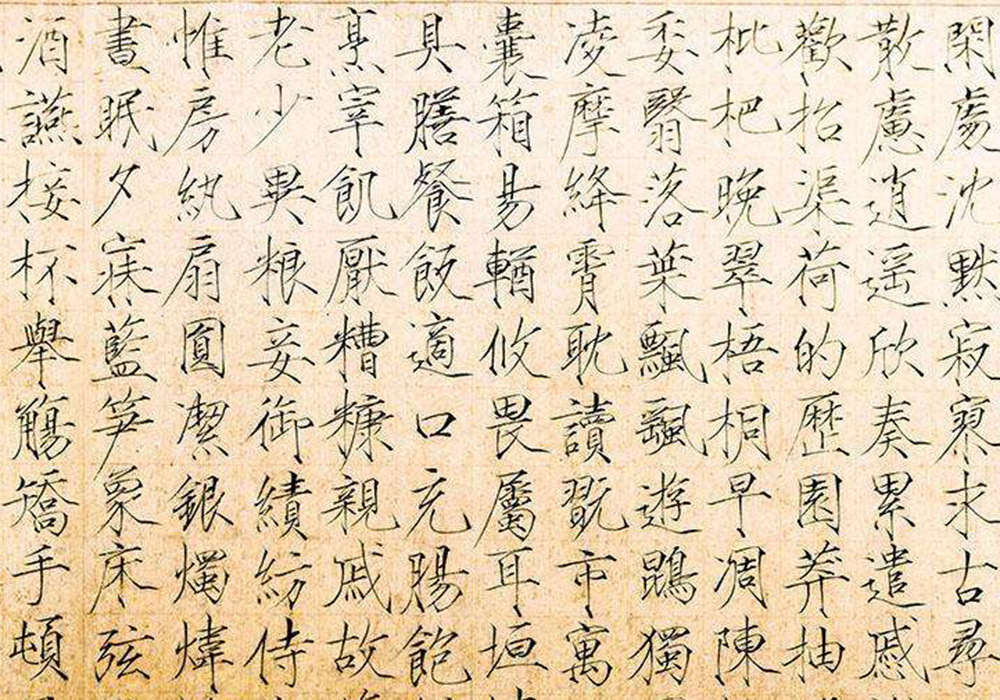 閑處沈默寂寥求古尋
散慮逍遥欣奏累遣慼
歡招渠荷的歷園莽抽
枇杷晚翠梧桐早凋陳
委翳落葉飄颻遊鵾獨
凌摩絳霄耽讀翫市寓
囊箱易輶攸畏屬耳垣
具膳餐飯適口充腸飽
烹宰飢厭糟糠親戚故
老少異粮妾御績紡侍
帷房紈扇圓潔銀燭煒
晝眠夕寐藍笋象床弦
酒讌接杯舉觴矯手頓